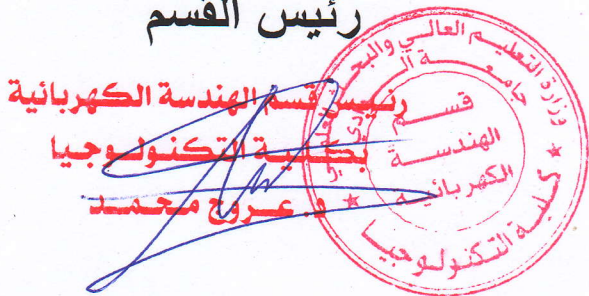 رئيس القسم
رئيس قسم الهندسة الكهربائية
بكلية التكنولوجيا
د. عروج محمد
وزارة التعليم العالي والبحث العلمي
جامعة الوادي
قسم
الهندسة
الكهربائية
كلية التكنولوجيا